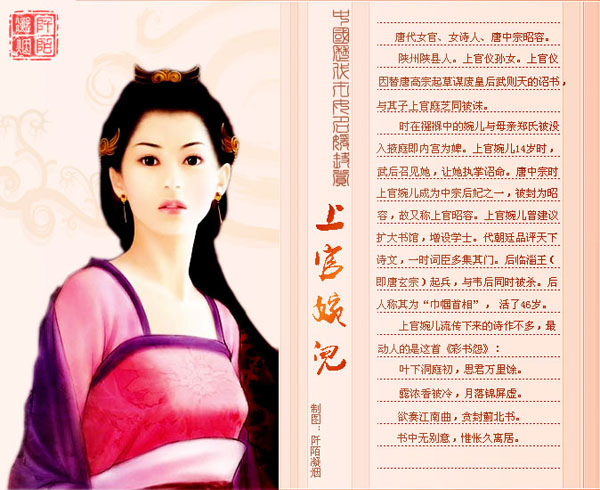 阡陌
凝烟
中國歷代
上官婉兒
制图：阡陌凝烟
唐代女官、女诗人、唐中宗昭容。
陕州陕县人。上官仪孙女。上官仪
因替唐高宗起草谋废皇后武则天的诏书，
与其子上官庭芝同被诛。
时在襁褓中的婉儿与母亲郑氏被没
入掖庭即内宫为婢。上官婉儿14岁时，
武后召见她，让她执掌诏命。唐中宗时
上官婉儿成为中宗后妃之一，被封为昭
容，故又称上官昭容。上官婉儿曾建议
扩大书馆，增设学士。代朝廷品评天下
诗文，一时词臣多集其门。后临淄王（
即唐玄宗）起兵，与韦后同时被杀。后
人称其为“巾帼首相”，活了46岁。
上官婉儿流传下来的诗作不多，最
动人的是这首《彩书怨》：
叶下洞庭初，思君万里馀。
露浓香被冷，月落锦屏虚。
欲奏江南曲，贪封蓟北书。
书中无别意，惟怅久离居。